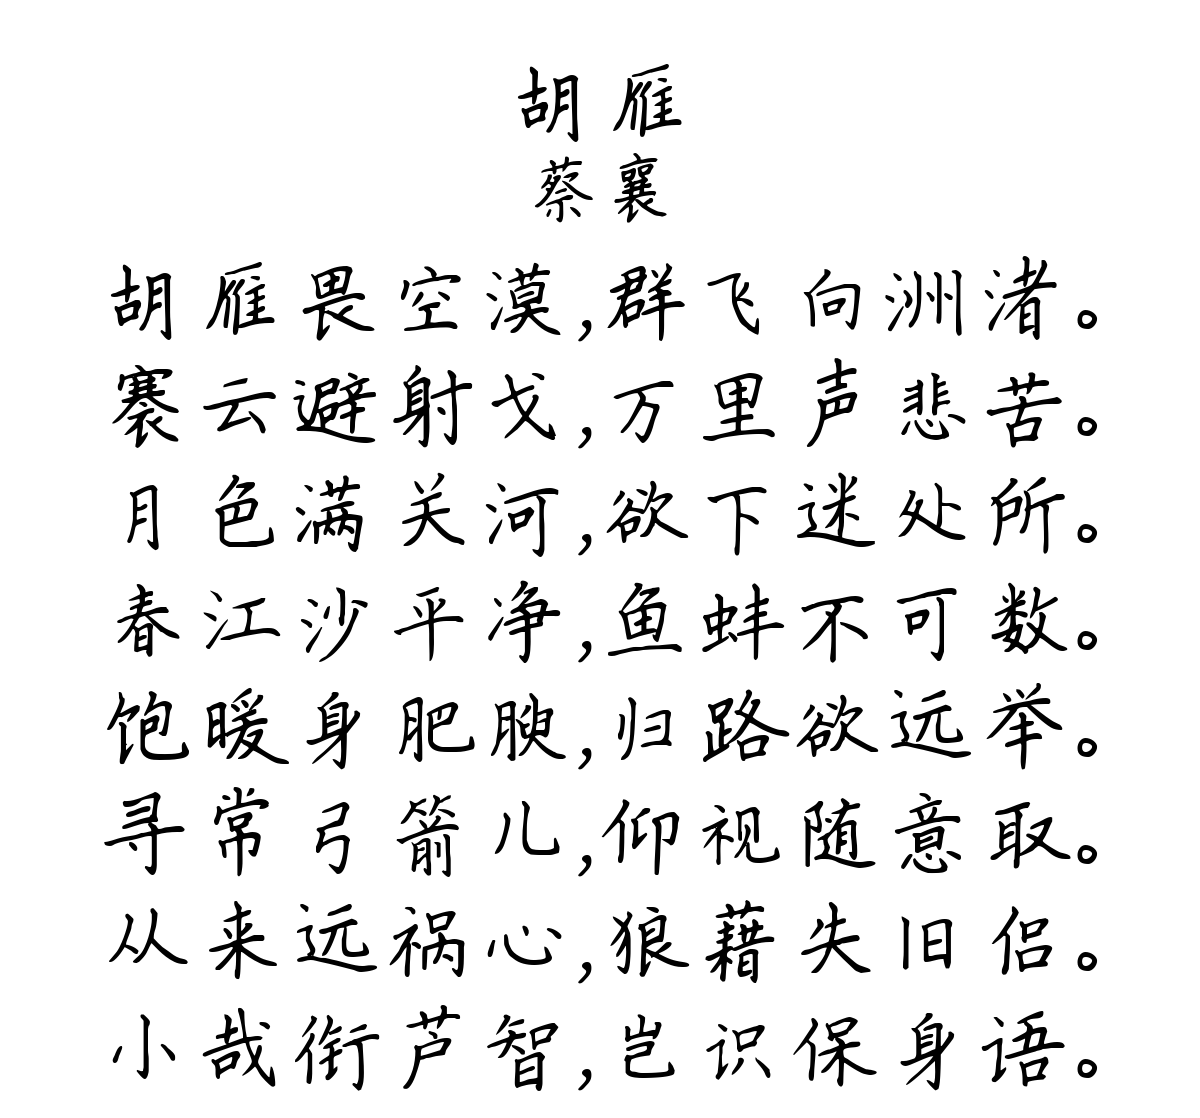 胡雁
蔡襄
胡雁畏空漠,群飞向洲渚。
褰云避射戈,万里声悲苦。
月色满关河,欲下迷处所。
春江沙平净,鱼蚌不可数。
饱暖身肥腴,归路欲远举。
寻常弓箭儿,仰视随意取。
从来远祸心,狼藉失旧侣。
小哉衔芦智,岂识保身语。